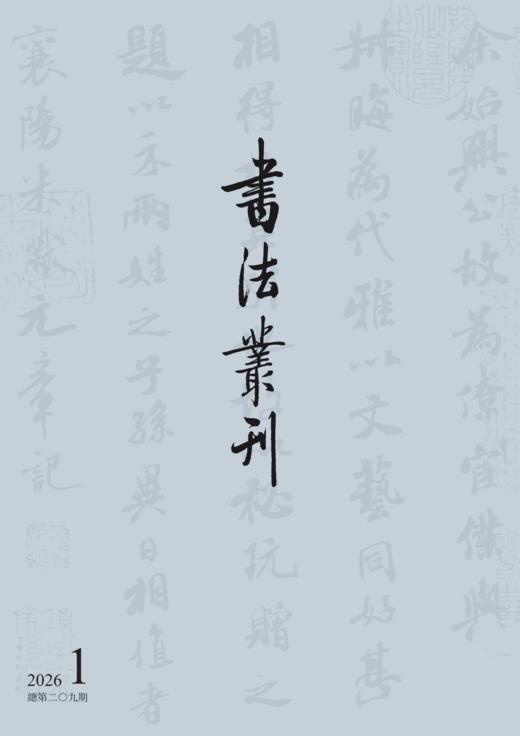 書法叢刊
余始興公故為僚宦僕與
叔晦為代雅以文藝同好甚
相得秘玩贈之
題以示兩姓之子孫異日相值者
襄陽米黻元章記
2026 1
總第二〇九期